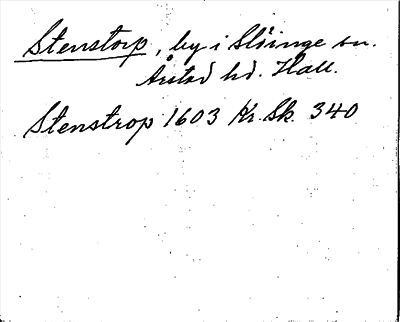 Stenstorp, by i Slöinge sn.
Årstad hd. Hall.
Stenstrop 1603 Kr. Sk. 340